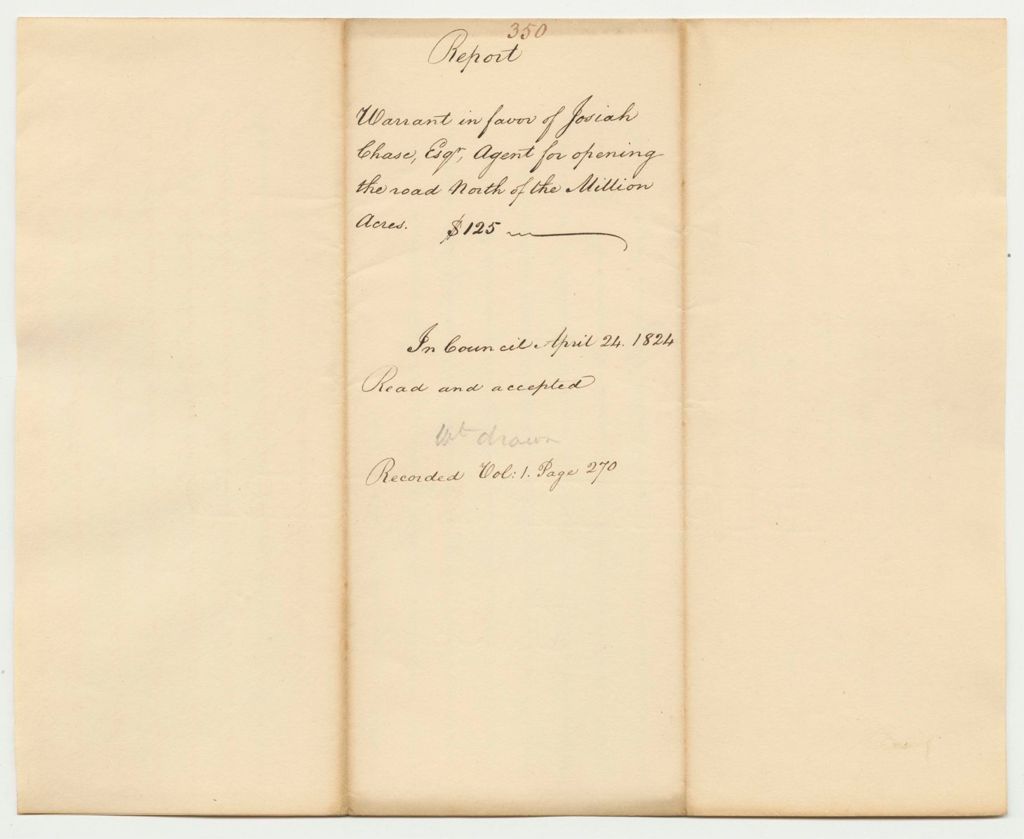 350
Report
Warrant in favor of Josiah
Chase, Esqr, Agent for opening
the road North of the Million
Acres. $125
In Council April 24. 1824
Read and accepted
Wt drawn
Recorded Vol: 1. Page 270